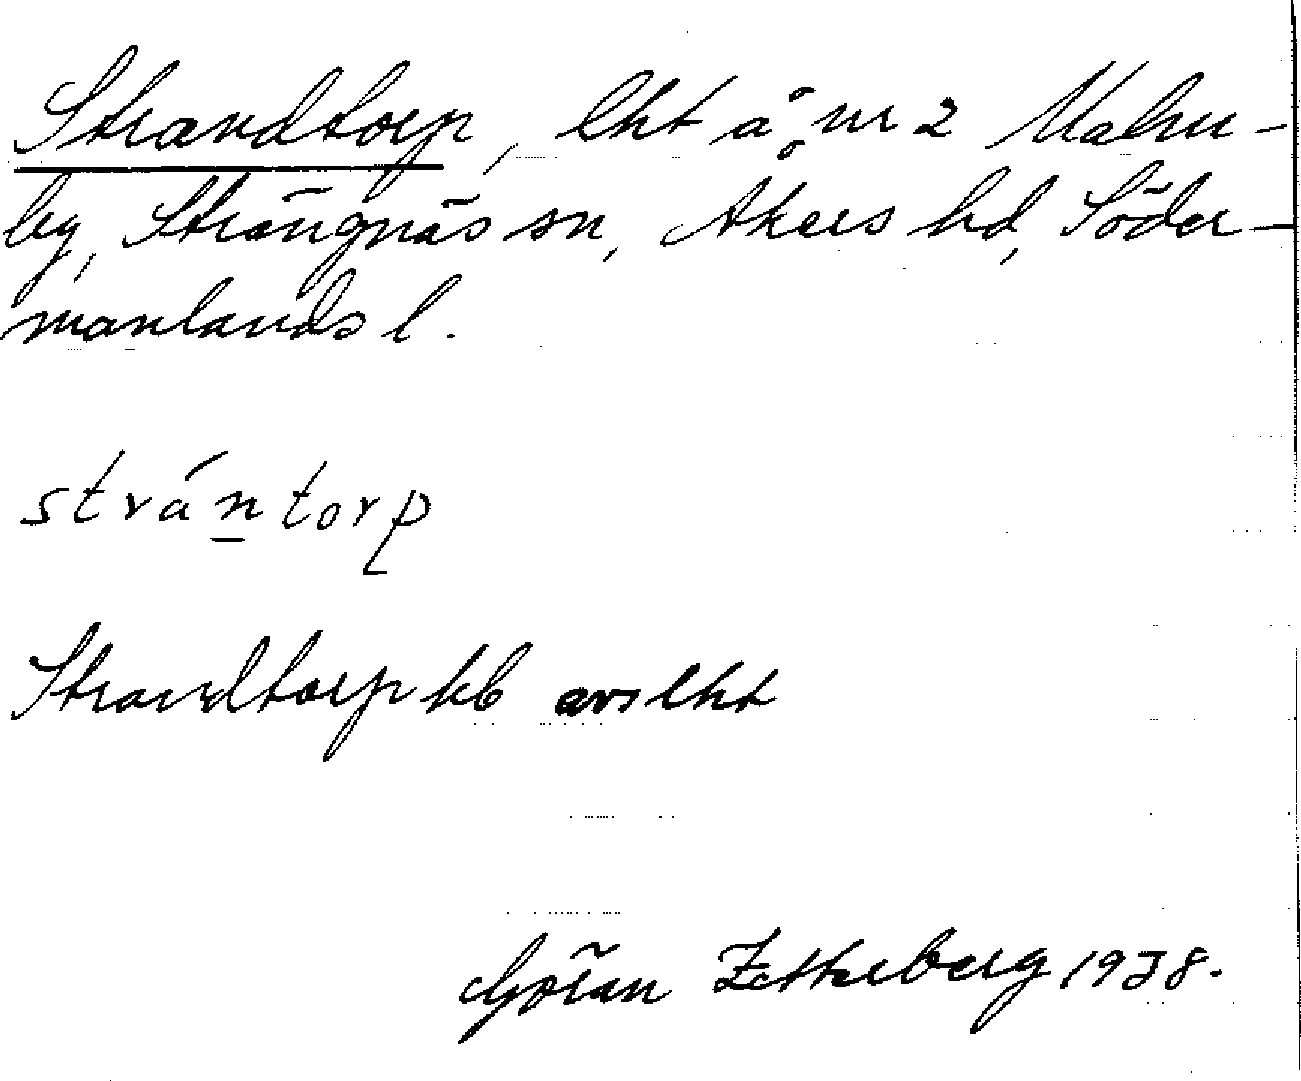 Strandtorp, lht å nr 2 Malm-
by, Strängnäs sn, Åkers hd, Söder-
manlands l.
strán̲torp
Strandtorp kb avs lht
Göran Zetterberg 1938.